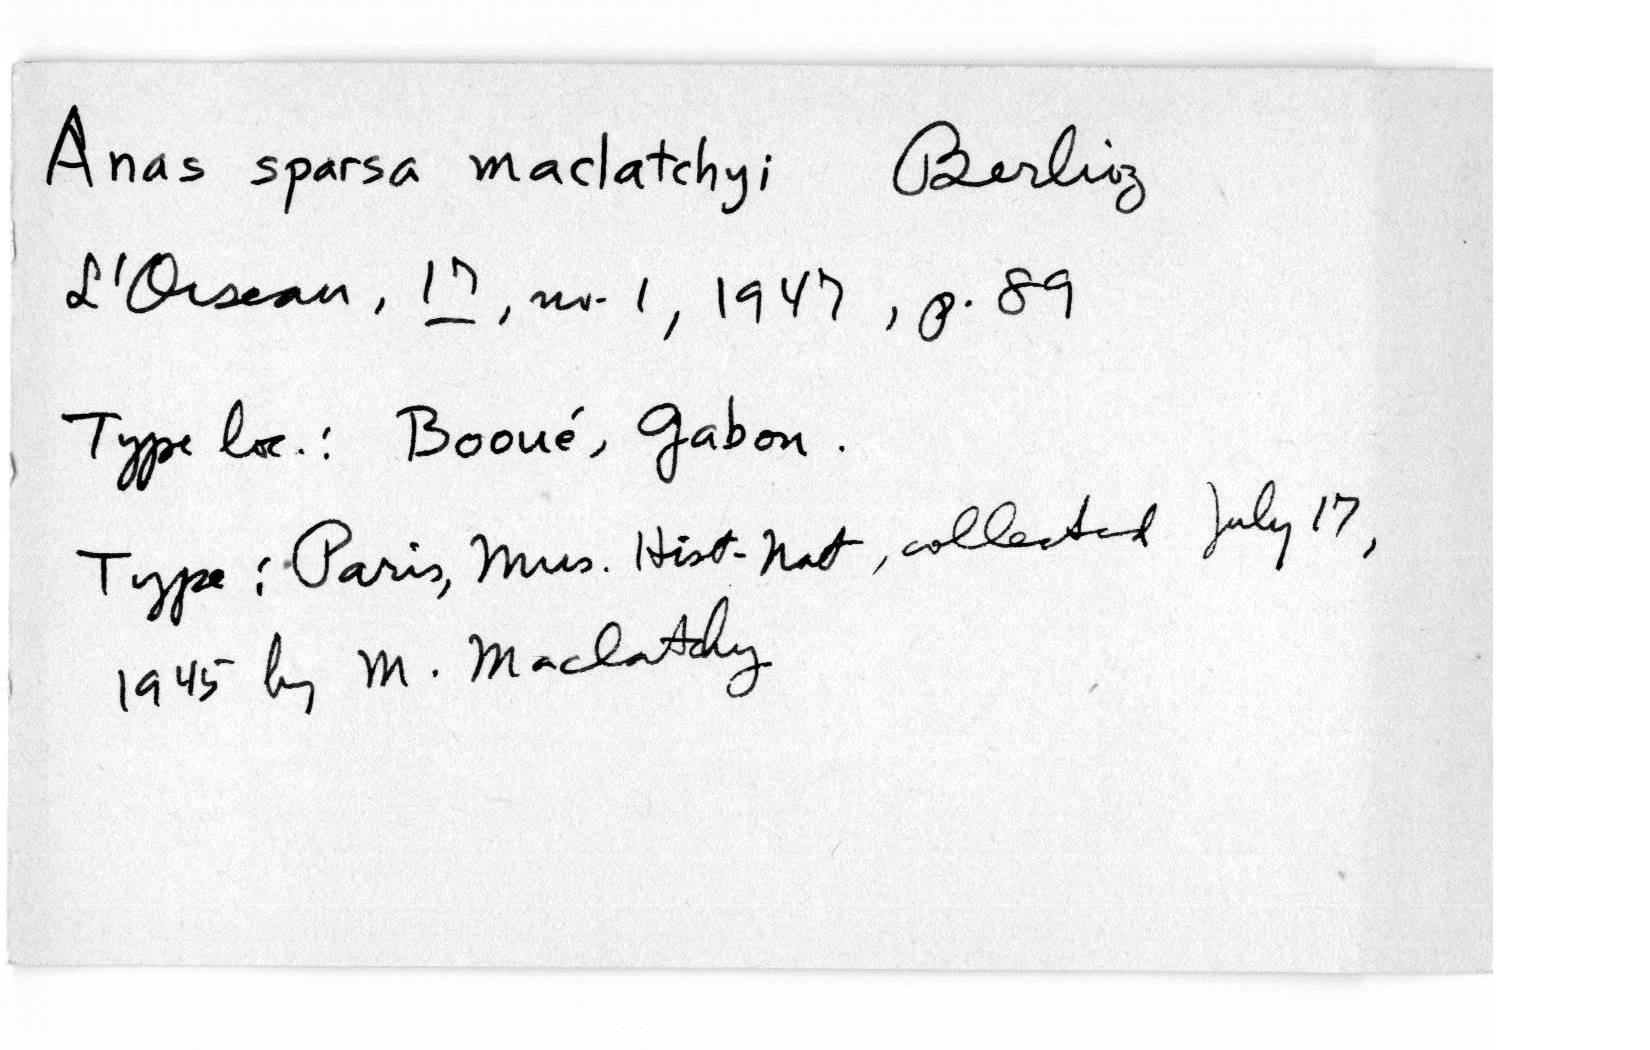 Anas sparsa maclatchyi Berlioz
L'Oiseau, 17, no. 1, 1947, p. 89
Type loc.: Booué, Gabon.
Type: Paris, Mus. Hist. Nat, collected July 17,
1945 by M. Maclatchy